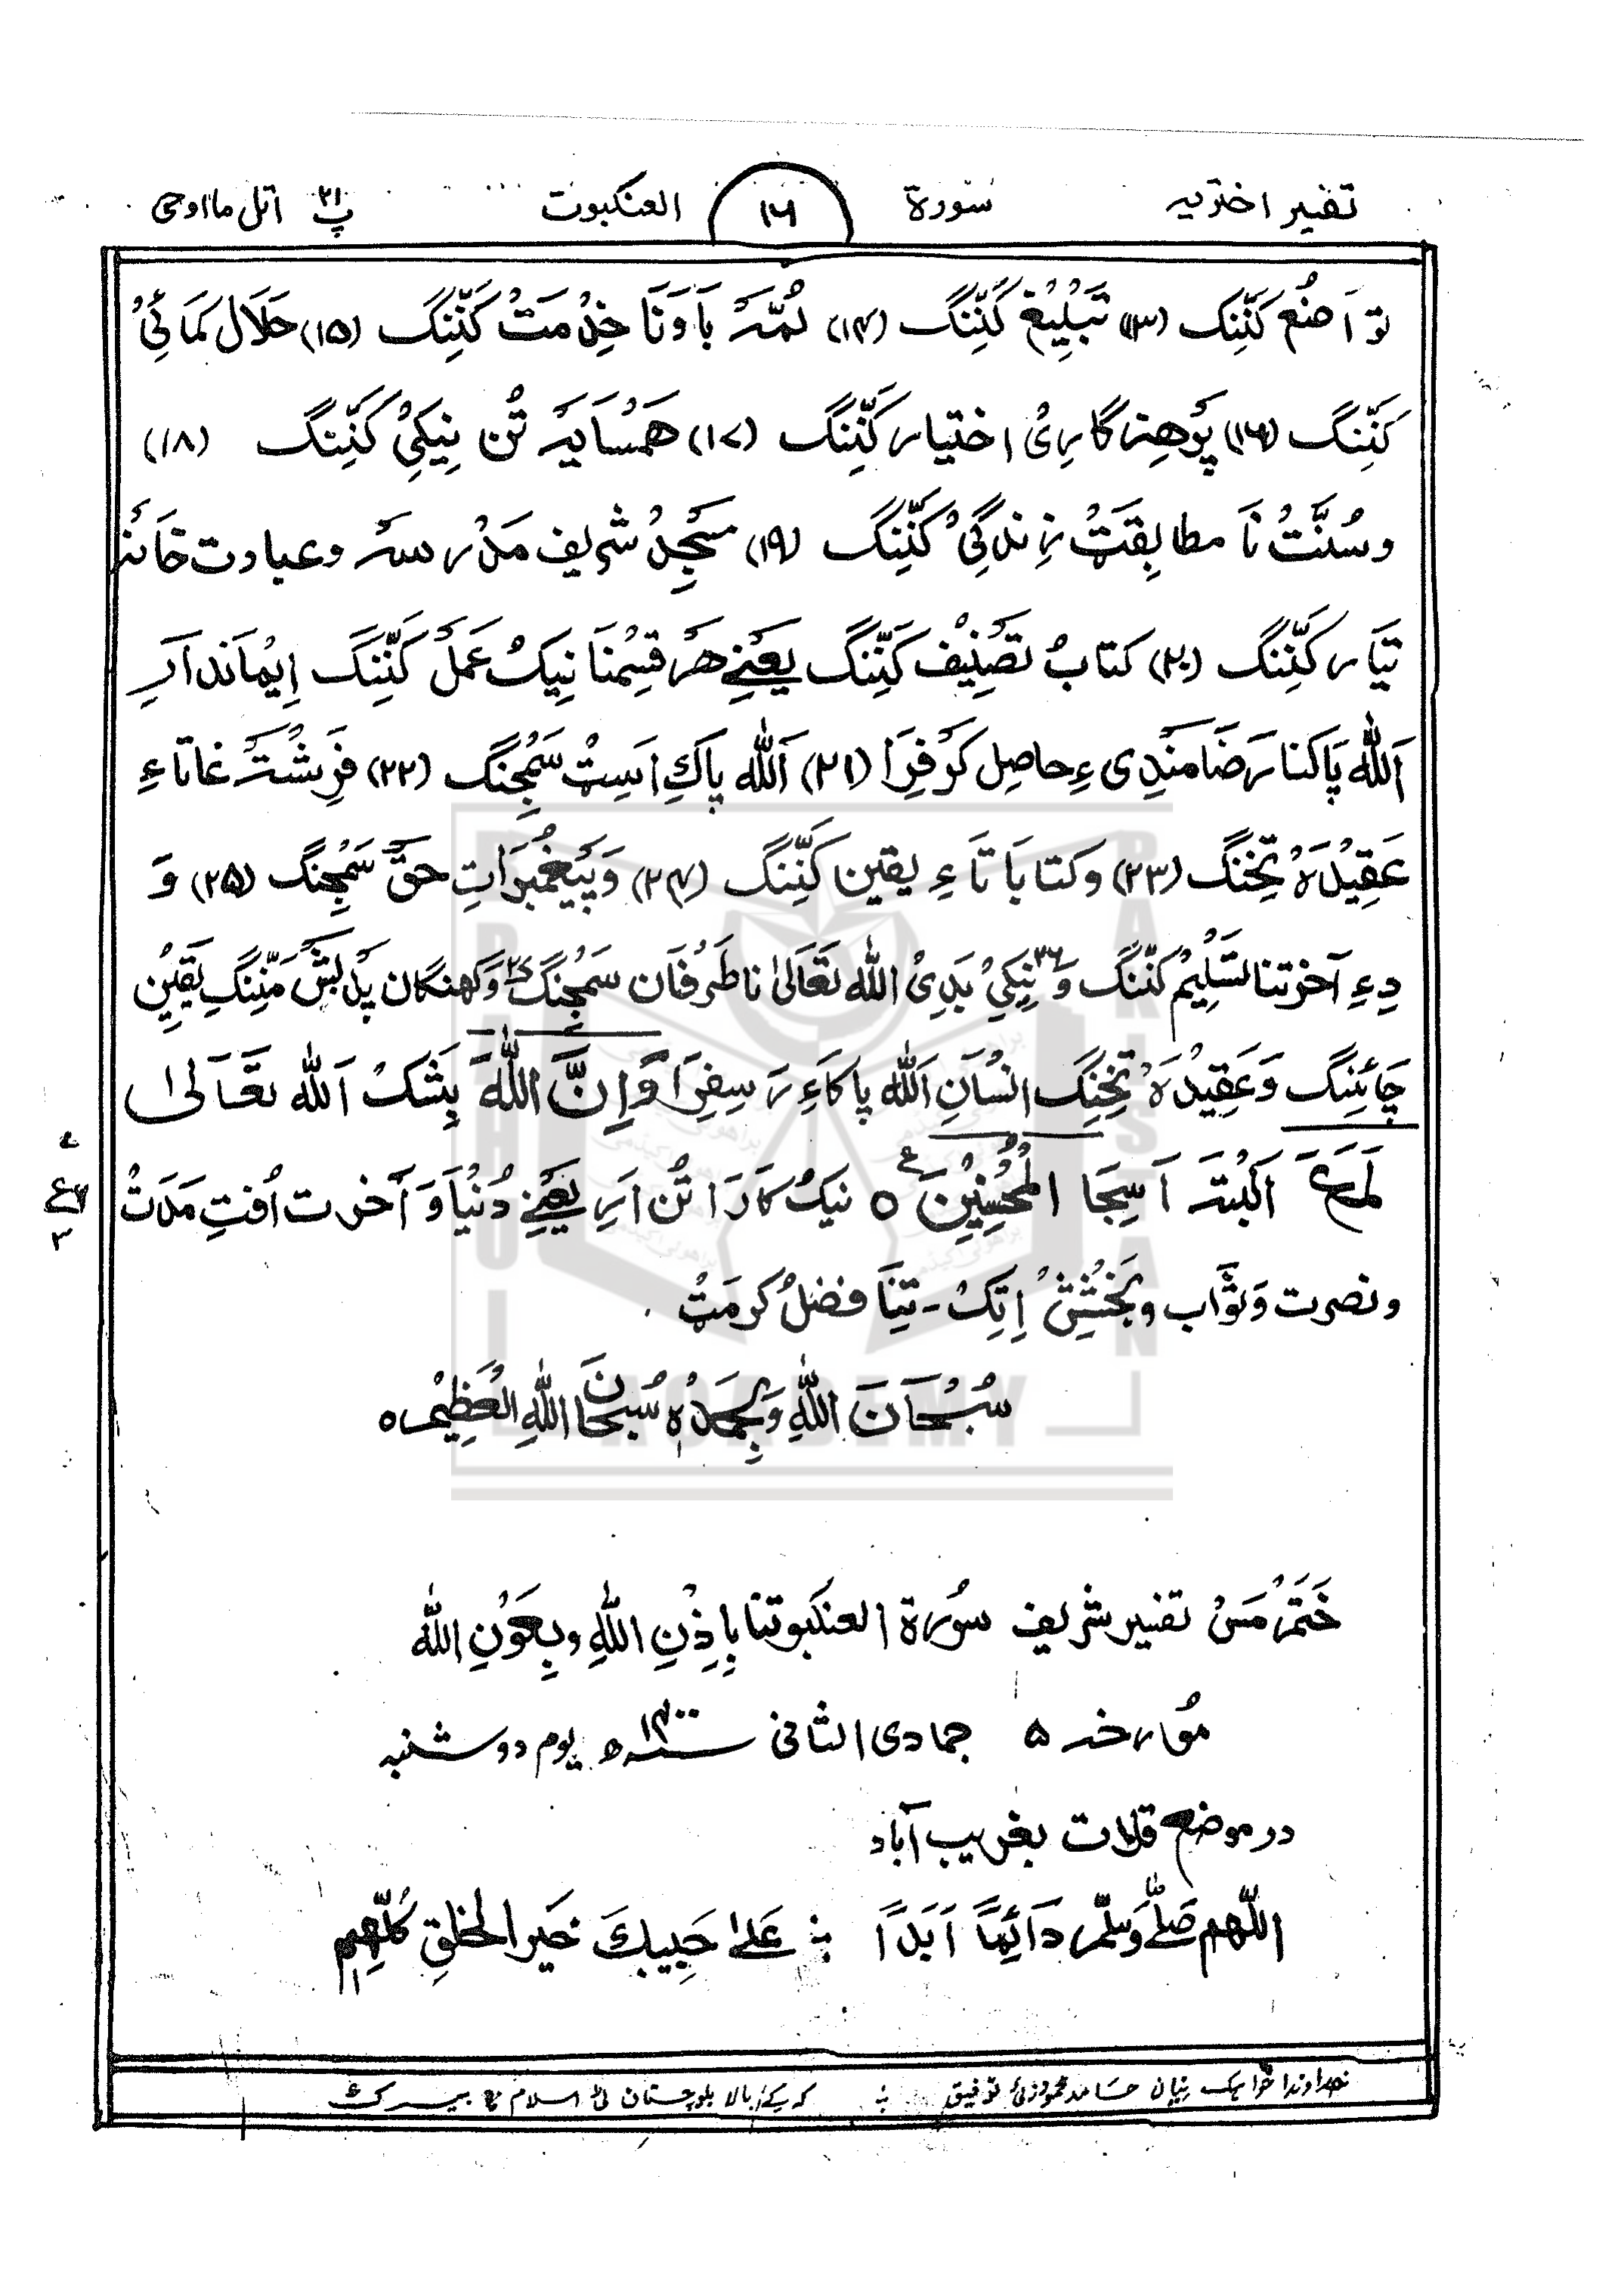 تفسیر اختریہ سورۃ ١٦ العنکبوت پ ٢١ اتل ما اوحی
تواَضُع کَنِّنِگ (١٣) تَبلِیغ کَنِّنِگ (١٤) لُمَّہ بَاوَنَا خِدْمَتْ کَنِّنِگ (١٥) حَلَال کَمَائِیْ
کَنِّنِگ (١٦) پَرْھِیزگَارِیْ اختیار کَنِّنِگ (١٧) ھَمْسَایَہ تُن نِیکِیْ کَنِّنِگ (١٨)
وسُنَّتْ نَا مطابِقَتْ زِنْدگِیْ کَنِّنِگ (١٩) مَسْجِدْ شرِیف مَدْرسہ و عبادت خَانہ
تیَار کَنِّنِگ (٢٠) کتابْ تصْنِیْف کَنِّنِگ یعنے ھَر قِسْمنَا نِیکْ عَملْ کَنِّنِگ اِیْمَاندَار
اَللّٰہ پَاکنا رَضَامَنْدِی ءِ حاصِل کَر فِرَا (٢١) اَللّٰہ پاکِ اَسِٹ سَمْجِنگ (٢٢) فَرِشْتَہ غَاتَاءِ
عَقِیْدَہْ تَخِنگ (٢٣) وکتابَا تَاءِ یقین کَنِّنِگ (٢٤) وَپَیْغمبَرَاتِ حَقْ سَمْجِنگ (٢٥) وَ
دِءِ آخرتنا تسْلِیْم کَنِّنگ وَ ٢٦ نِیکِیْ بَدِیْ اللّٰہ تَعَالیٰ نا طَرفَان سَمْجِنگ ٢٧ وَکھنگان پد بَشْ مَنِّنگِ یَقِیْن
چَائِنِگ وَعَقِیْدَہْ تَخِنگ انْسَانِ اَللّٰہ پاکاءِ رَسِفِرَا وَاِنَّ اللّٰہَ بِشَکْ اَللّٰہ تعَالیٰ
لَمَعَ اَلْبتَہ اَسِجَا الْمُحْسِنِیْنَ ٥ نیکْ کارَاتُن اَرِ یعنے دُنْیَا وَ آخرت اُفتِ مَدَتْ
ونصرت وَثوَاب وبَخْشِشْ اِتِکْ - تِینَا فضلْ کرمَتْ
سُبْحَانَ اللّٰہِ وَبِحَمْدِہٖ سُبْحَانَ اللّٰہِ الْعَظِیْمِ ٥
خَتَم مَسْ تفسیر شریف سُورۃ العنکبوتنا بِاِذْنِ اللّٰہِ وبِعَوْنِ اللّٰہ
مُوارخہ ٥ جمادی الثانی ١٤٠٠ ھ یوم دوشنبہ
در موضع قلات بغریب آباد
اللّٰھم صَلِّ وَسلِّم دَائِمًا اَبَدًا ؞ عَلیٰ حَبِیبِكَ خَیرِ الخلقِ کُلِّھِم
خداوندا خواہک زیان حامد محمودنی توفیق ؞ کہ کے بالا بلوچستان ٹی اسلام نا بیرک